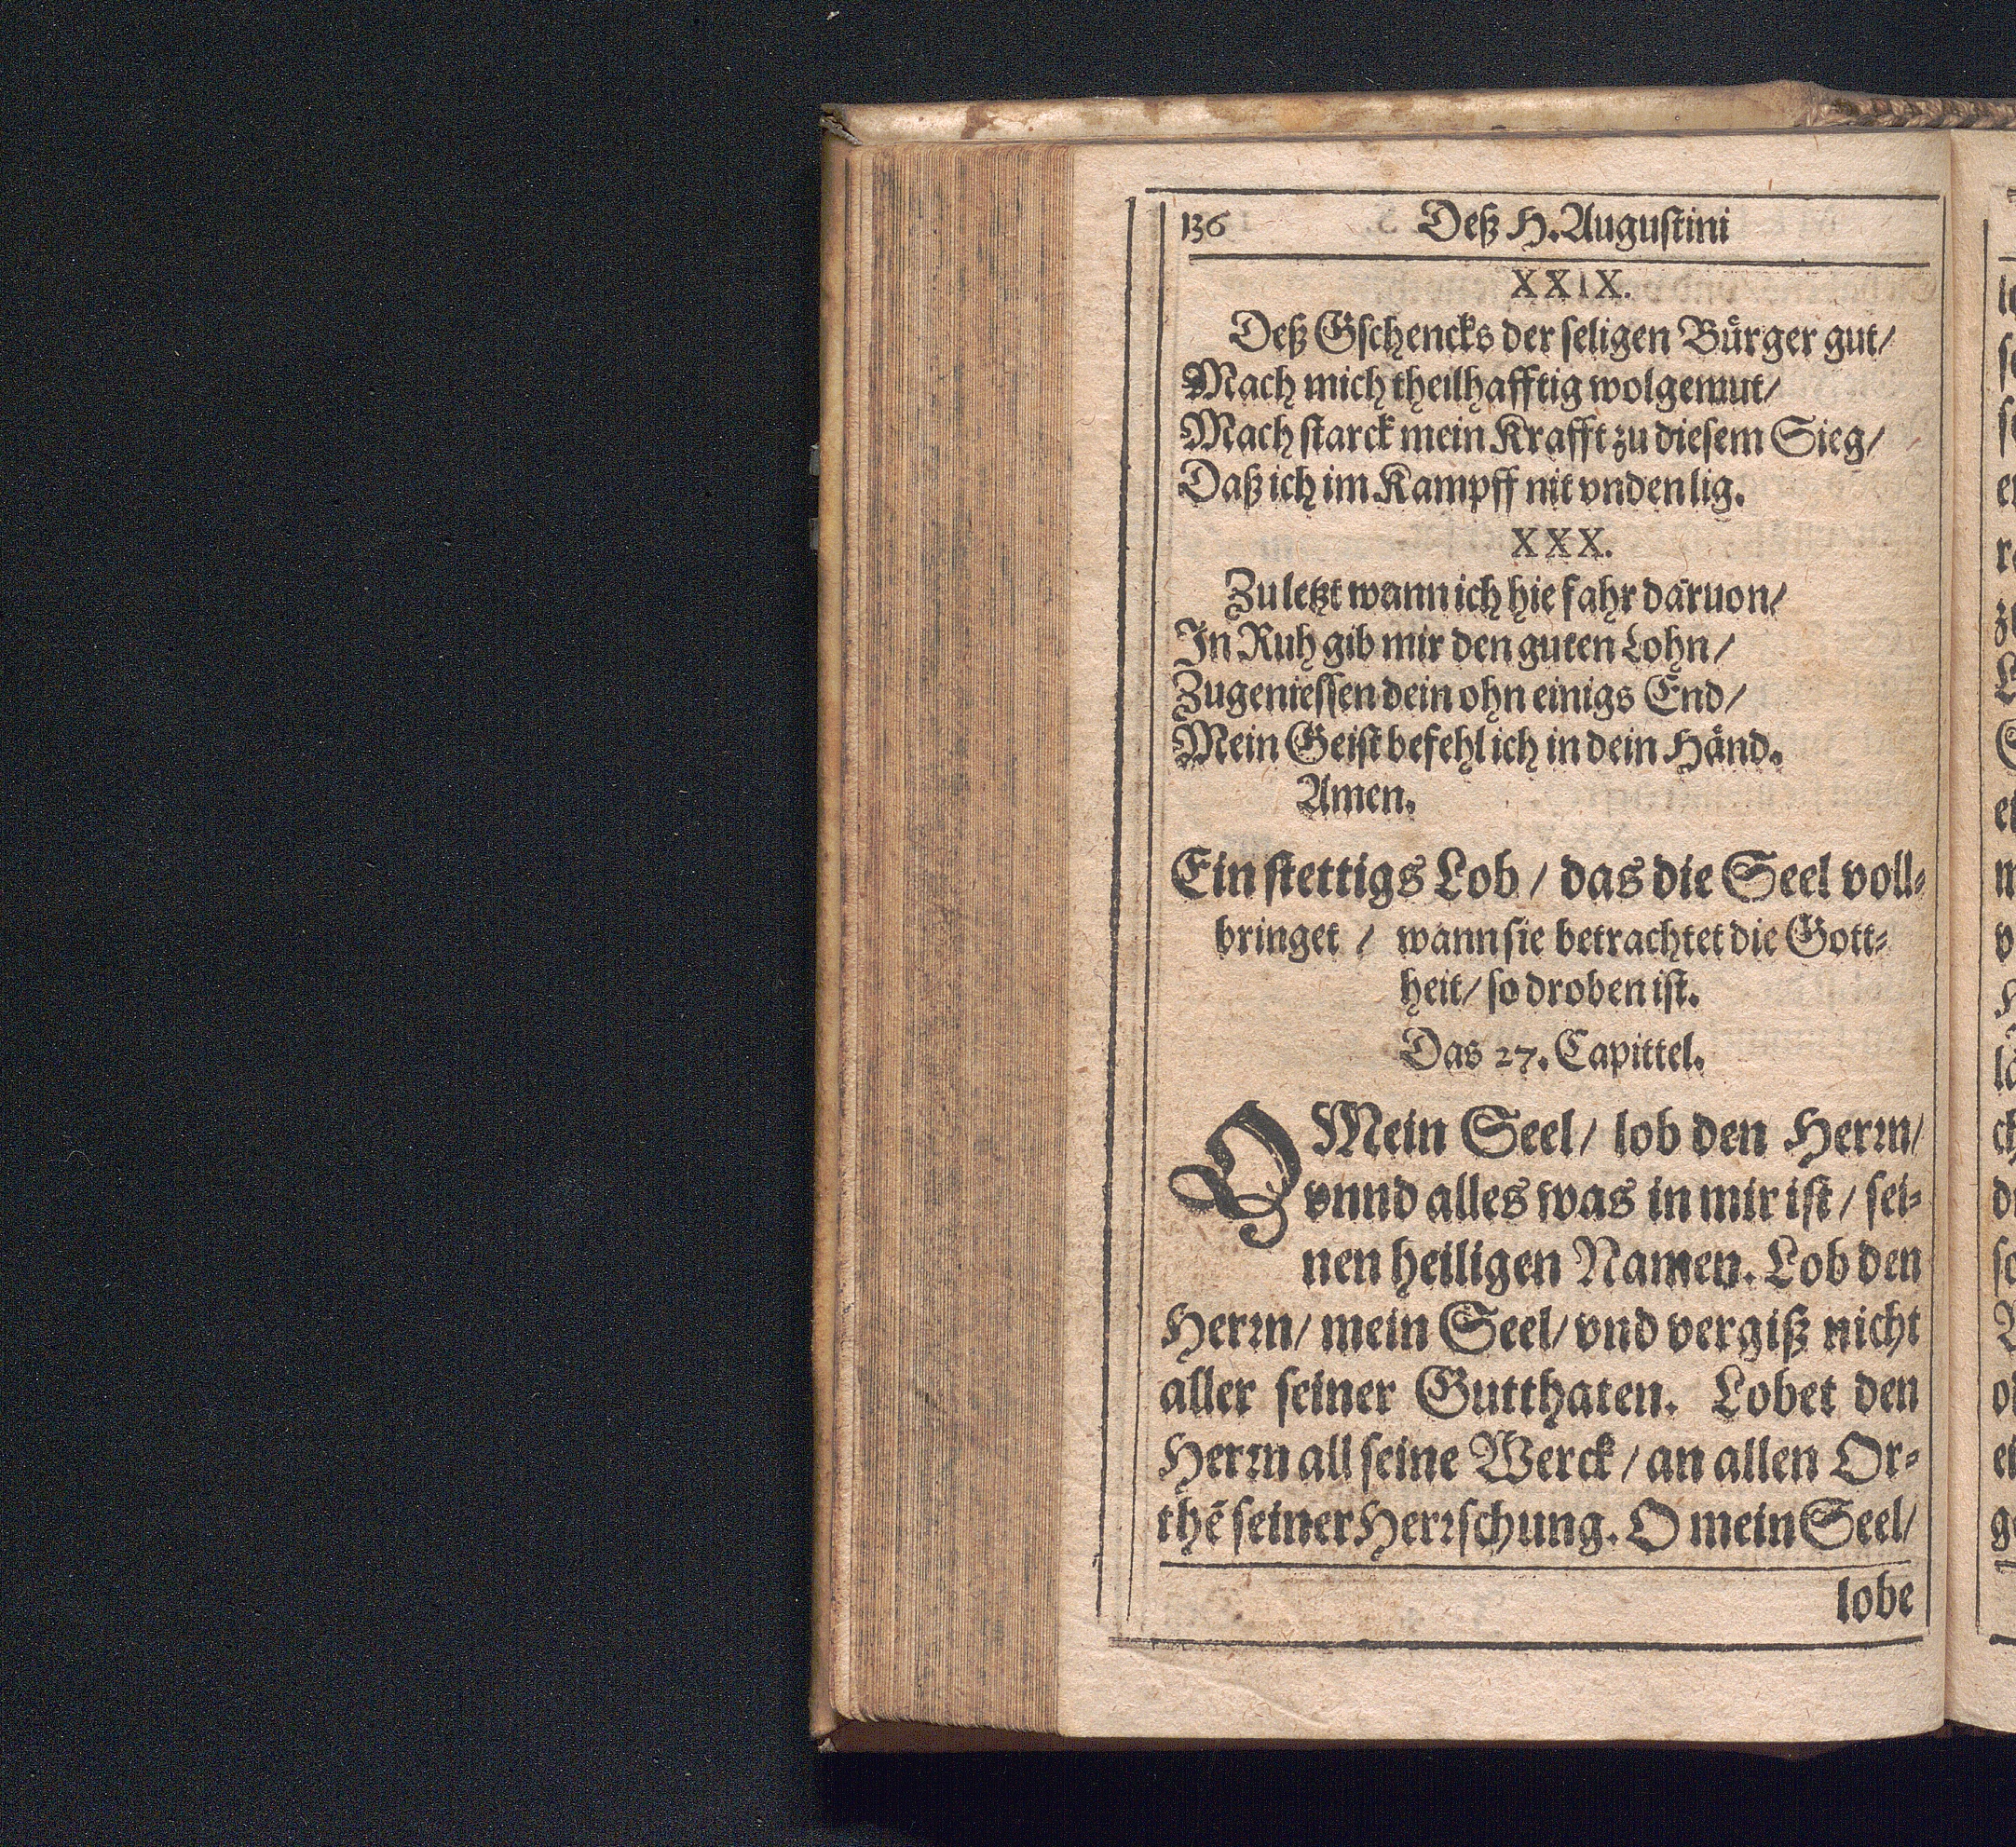 136 Deß H. Augustini
XXIX.
Deß Gschencks der seligen Bürger gut/
Mach mich theilhafftig wolgemut/
Mach starck mein Krafft zu diesem Sieg/
Daß ich im Kampff nit vnden lig.
XXX.
Zu letzt wann ich hie fahr daruon/
In Ruh gib mir den guten Lohn/
Zugeniessen dein ohn einigs End/
Mein Geist befehl ich in dein Händ.
Amen.
Ein stettigs Lob / das die Seel voll-
bringet / wann sie betrachtet die Gott-
heit/ so droben ist.
Das 27. Capittel.
O Mein Seel/ lob den Herrn/
vnnd alles was in mir ist / sei-
nen heiligen Namen. Lob den
Herrn/ mein Seel/ vnd vergiß nicht
aller seiner Gutthaten. Lobet den
Herrn all seine Werck / an allen Or-
thē seiner Herrschung. O mein Seel/
lobe